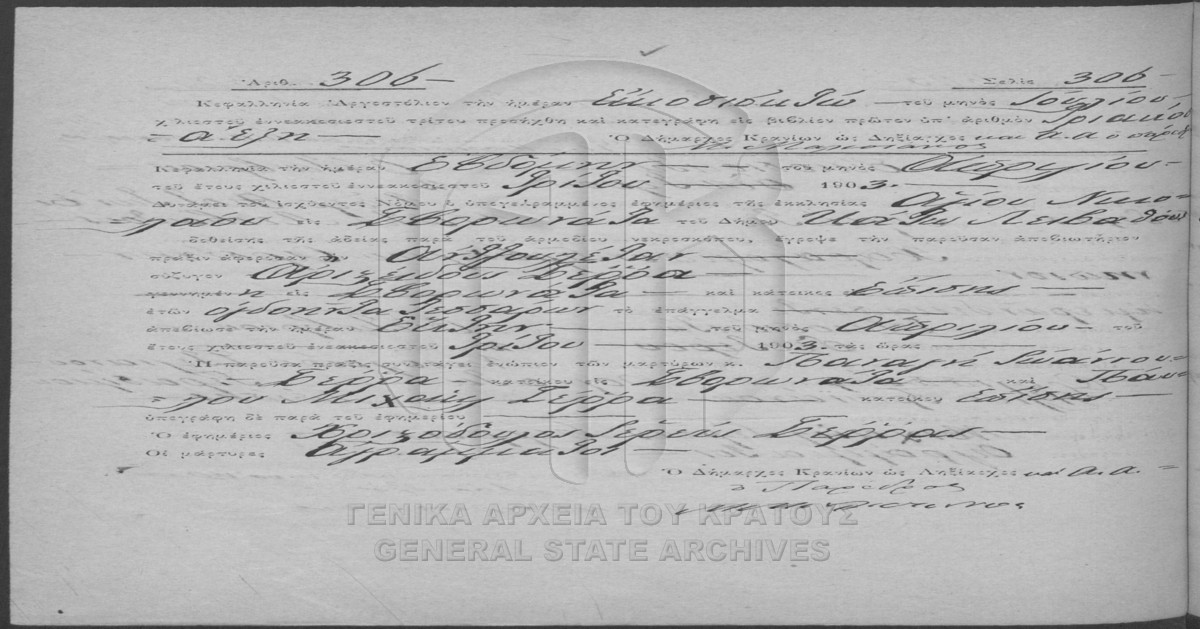 Ἀριθ. 306 Σελὶς 306
Κεφαλληνία Ἀργοστόλιον τὴν ἡμέραν Εἰκοσιοκτὼ τοῦ μηνὸς Ἰουλίου
χιλιοστοῦ ἐννεακοσιοστοῦ τρίτου προσήχθη καὶ κατεγράφη εἰς βιβλίον πρῶτον ὑπ' ἀριθμὸν Τριακόσι
= α ἕξη Ὁ Δήμαρχος Κρανίων ὡς Ληξίαρχος
Κεφαλληνία τὴν ἡμέραν Ἑβδόμην τοῦ μηνὸς Ἀπριλίου
τοῦ ἔτους χιλιοστοῦ ἐννεακοσιοστοῦ Τρίτου 1903.
Δυνάμει τοῦ ἰσχύοντος Νόμου ὁ ὑπογεγραμμένος ἐφημέριος τῆς ἐκκλησίας Ἁγίου Νικο
= λάου εἰς Σβορωνάτα τοῦ Δήμου Λειβαθοῦς
δοθείσης τῆς ἀδείας παρὰ τοῦ ἁρμοδίου νεκροσκόπου, ἔγραψε τὴν παροῦσαν ἀποβιωτήριον
πρᾶξιν ἀφορῶσαν τὴν
σύζυγον Σέρρα
γεννημένη εἰς Σβορωνάτα καὶ κάτοικος ἐπίσης
ἐτῶν ὀγδοήντα τεσσάρων τὸ ἐπάγγελμα
ἀπεβίωσε τὴν ἡμέραν Ἕκτην τοῦ μηνὸς Ἀπριλίου τοῦ
ἔτους χιλιοστοῦ ἐννεακοσιοστοῦ Τρίτου 1903. τὰς ὥρας
Ἡ παροῦσα πρᾶξις συνετάγει ἐνώπιον τῶν μαρτύρων κ. Παναγῆ Ἰωάννου
Σέρρα κατοίκου εἰς Σβορωνάτα καὶ Παύ
= λου Μιχαὴλ Σέρρα κατοίκου ἐπίσης
ὑπεγράφη δὲ παρὰ τοῦ ἐφημερίου
Ὁ ἐφημέριος Χριστόδουλος Ἱερεὺς Σέρρας
Οἱ μάρτυρες Ἀγράμματοι
Ὁ Δήμαρχος Κρανίων ὡς Ληξίαρχος κ. α. α.
ὁ Πάρεδρος
ΓΕΝΙΚΑ ΑΡΧΕΙΑ ΤΟΥ ΚΡΑΤΟΥΣ
GENERAL STATE ARCHIVES